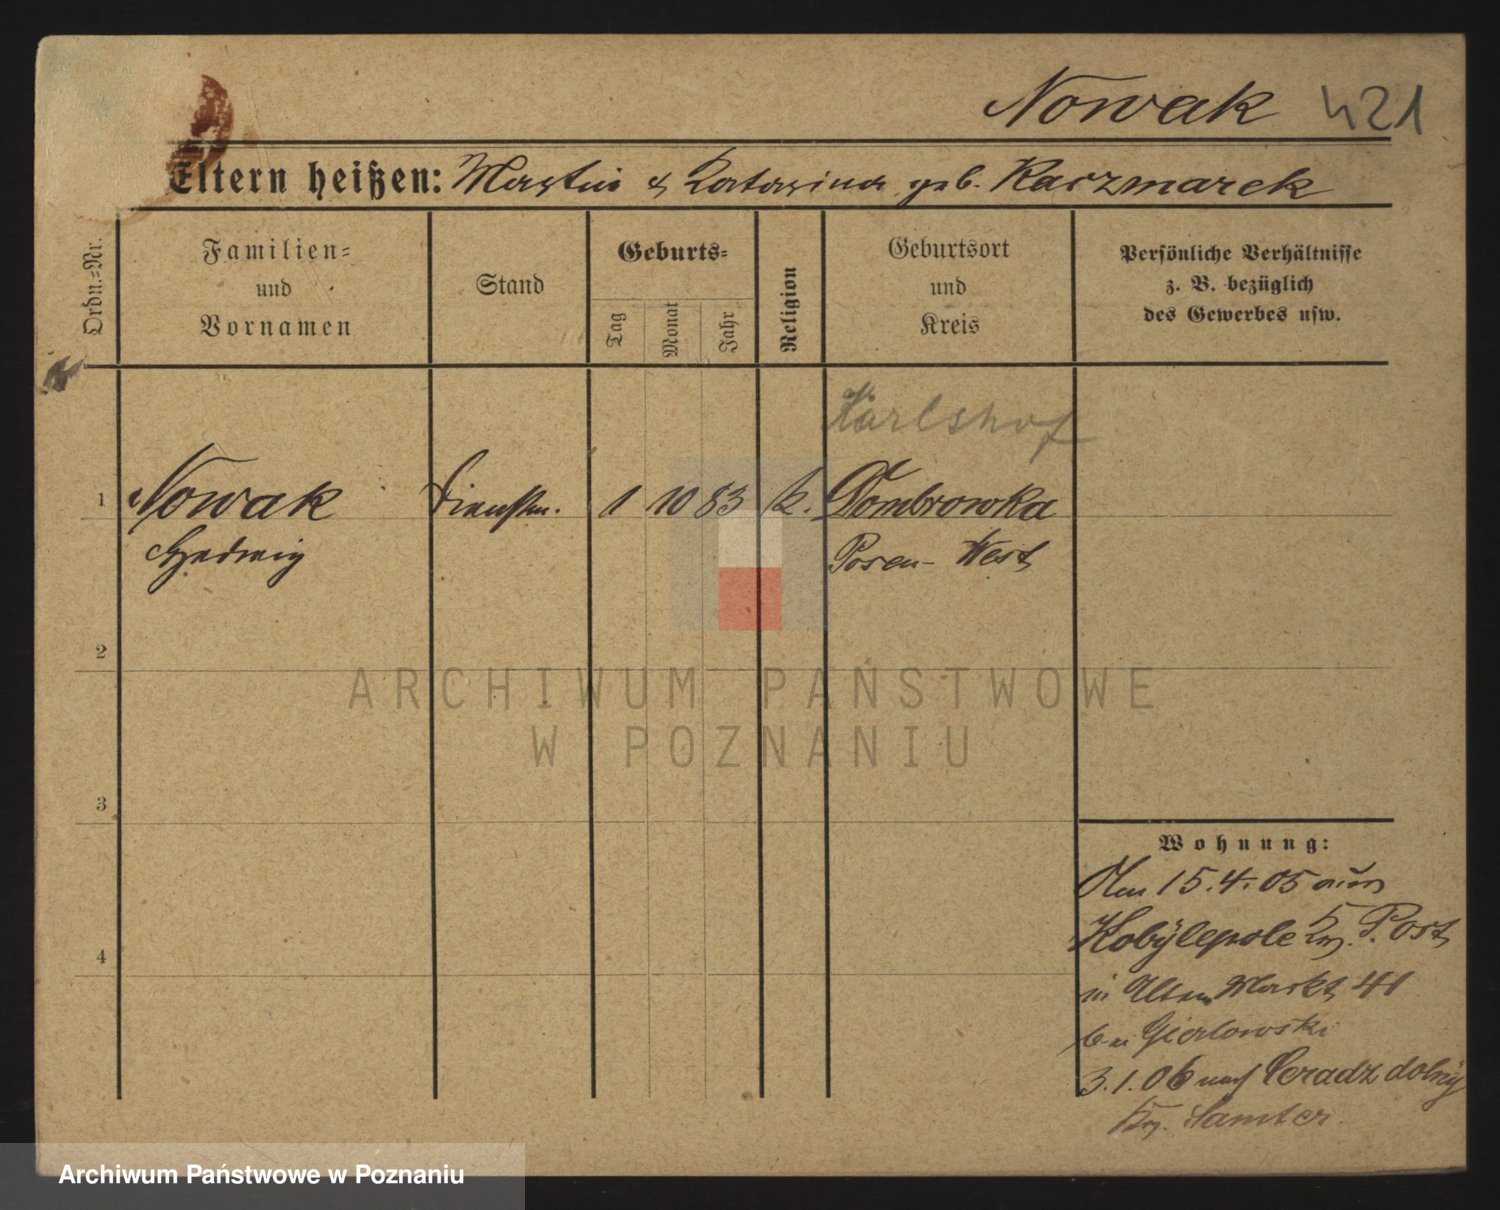 Nowak 421
Eltern heißen: Martin & Katarina geb. Kaczmarek
Ordn.-Nr.
Familien-
und
Vornamen
Stand
Geburts-
Tag
Monat
Jahr
Religion
Geburtsort
und
Kreis
Persönliche Verhältnisse
z. B. bezüglich
des Gewerbes usw.
Karlshof
1 Nowak Dienstm. 1 10 83 k. Dombrowka
Hedwig Posen-West
2
ARCHIWUM PAŃSTWOWE
W POZNANIU
3
Wohnung:
Am 15.4.05 aus
Kobylepole Krs. P. Ost
in Alten Markt 41
bei Gierlowski
4
3.1.06 nach Ceradz dolny
Krs. Samter.
Archiwum Państwowe w Poznaniu